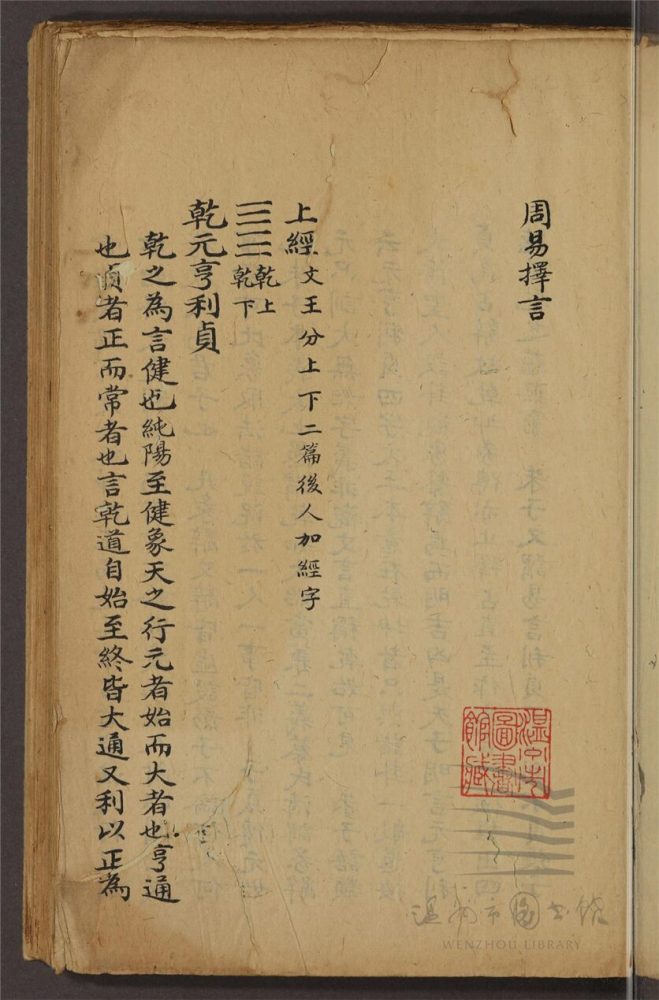 周易擇言
上經 文王分上下二篇後人加經字
乾上
乾下
乾元亨利貞
乾之為言健也純陽至健象天之行元者始而大者也亨通
也貞者正而常者也言乾道自始至終皆大通又利以正為
溫州市圖書館藏
溫州市图书馆
WENZHOU LIBRARY